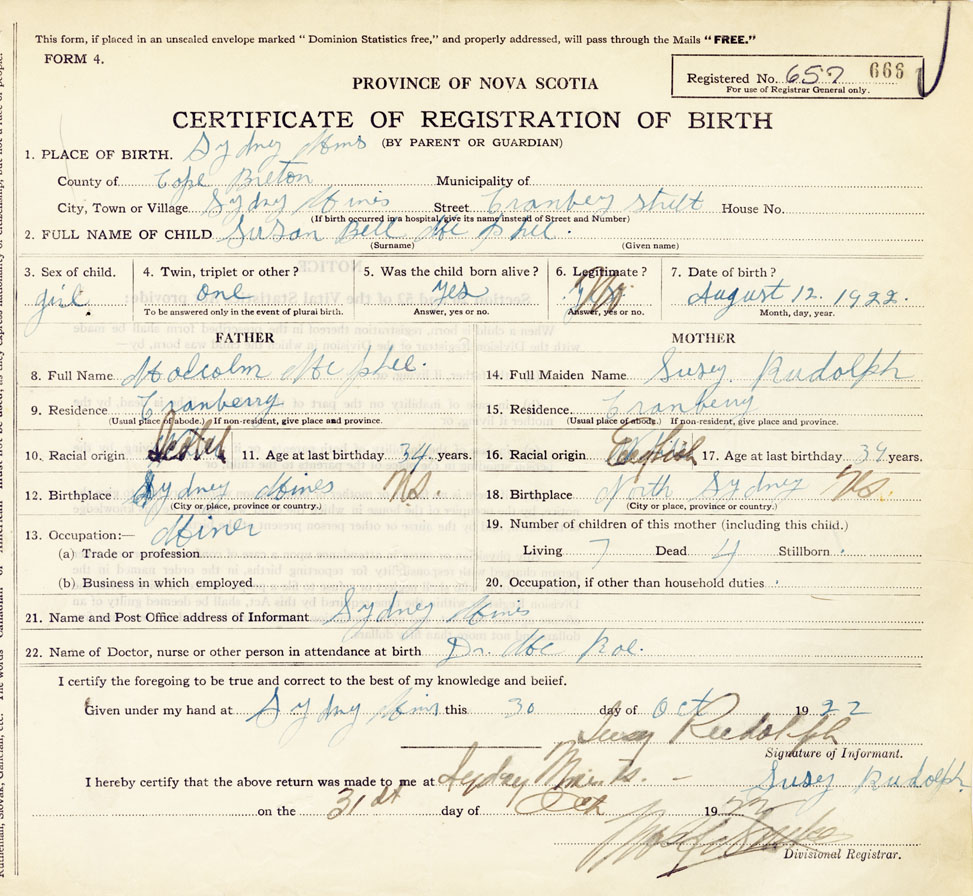 This form, if placed in an unsealed envelope marked " Dominion Statistics free," and properly addressed, will pass through the Mails " FREE."
FORM 4.
Registered No. 657 666
For use of Registrar General only.
PROVINCE OF NOVA SCOTIA
CERTIFICATE OF REGISTRATION OF BIRTH
(BY PARENT OR GUARDIAN)
1. PLACE OF BIRTH. Sydney Mins
County of Cope Breton Municipality of
City, Town or Village Sydney Mines Street Cranbey street House No.
(If birth occurred in a hospital, give its name instead of Street and Number)
2. FULL NAME OF CHILD Susan Bell Mc Phee.
(Surname) (Given name)
3. Sex of child. 4. Twin, triplet or other? 5. Was the child born alive? 6. Legitimate? 7. Date of birth?
girl one yes August 12. 1922.
To be answered only in the event of plural birth. Answer, yes or no. Answer, yes or no. Month, day, year.
FATHER MOTHER
8. Full Name Malcolm Mc Phee. 14. Full Maiden Name Susy Rudolph
9. Residence Cranberry 15. Residence. Cranberry
(Usual place of abode.) If non-resident, give place and province. (Usual place of abode.) If non-resident, give place and province.
10. Racial origin Scotch 11. Age at last birthday 34 years. 16. Racial origin English 17. Age at last birthday 34 years.
12. Birthplace Sydney Mines NS. 18. Birthplace North Sydney NS.
(City or place, province or country.) (City or place, province or country.)
13. Occupation:— Miner 19. Number of children of this mother (including this child.)
(a) Trade or profession Living 7 Dead 4 Stillborn
(b) Business in which employed 20. Occupation, if other than household duties
21. Name and Post Office address of Informant Sydney Mines
22. Name of Doctor, nurse or other person in attendance at birth Dr. Mc Rae.
I certify the foregoing to be true and correct to the best of my knowledge and belief.
Given under my hand at Sydney Mines this 30 day of Oct 1922
Susy Rudolph
Signature of Informant.
I hereby certify that the above return was made to me at Sydney Mines Susy Rudolph
on the 31st day of Oct 1922
Divisional Registrar.